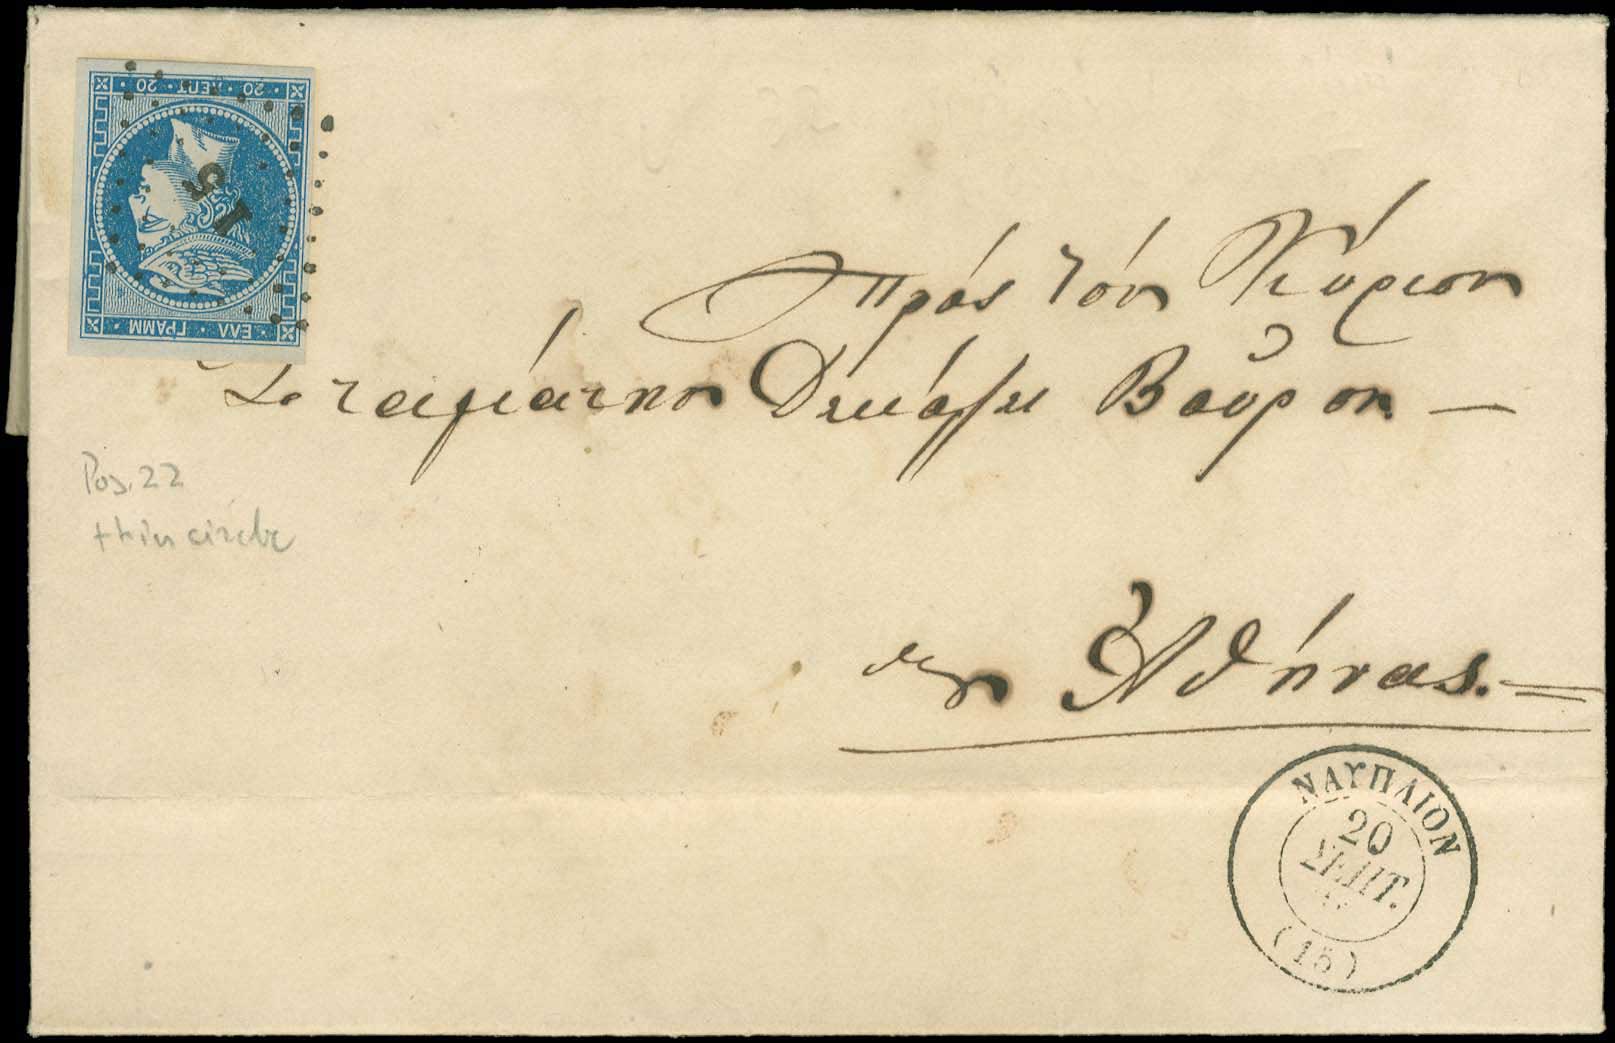 20 · ΛΕΠΤ · 20
ΕΛΛ · ΓΡΑΜΜ
15
Πρὸς τὸν Κύριον
Σταμάτιον Δεκόζη Βοῦρον —
Pos. 22
thin circle
εἰς Ἀθήνας. =
ΝΑΥΠΛΙΟΝ
20
ΣΕΠΤ.
(15)